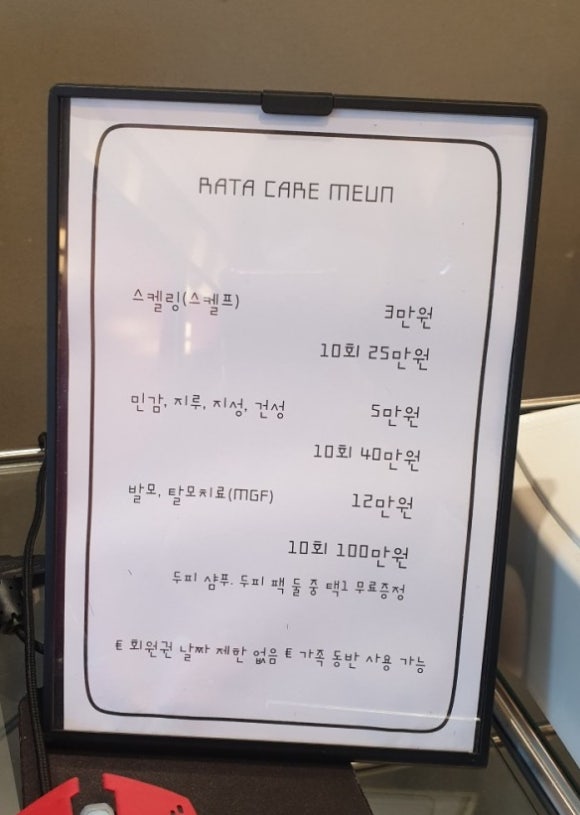 RATA CARE MEUN
스켈링(스켈프) 3만원
10회 25만원
민감, 지루, 지성, 건성 5만원
10회 40만원
발모, 탈모치료(MGF) 12만원
10회 100만원
두피 샴푸. 두피 팩 둘 중 택1 무료증정
€ 회원권 날짜 제한 없음 € 가족 동반 사용 가능